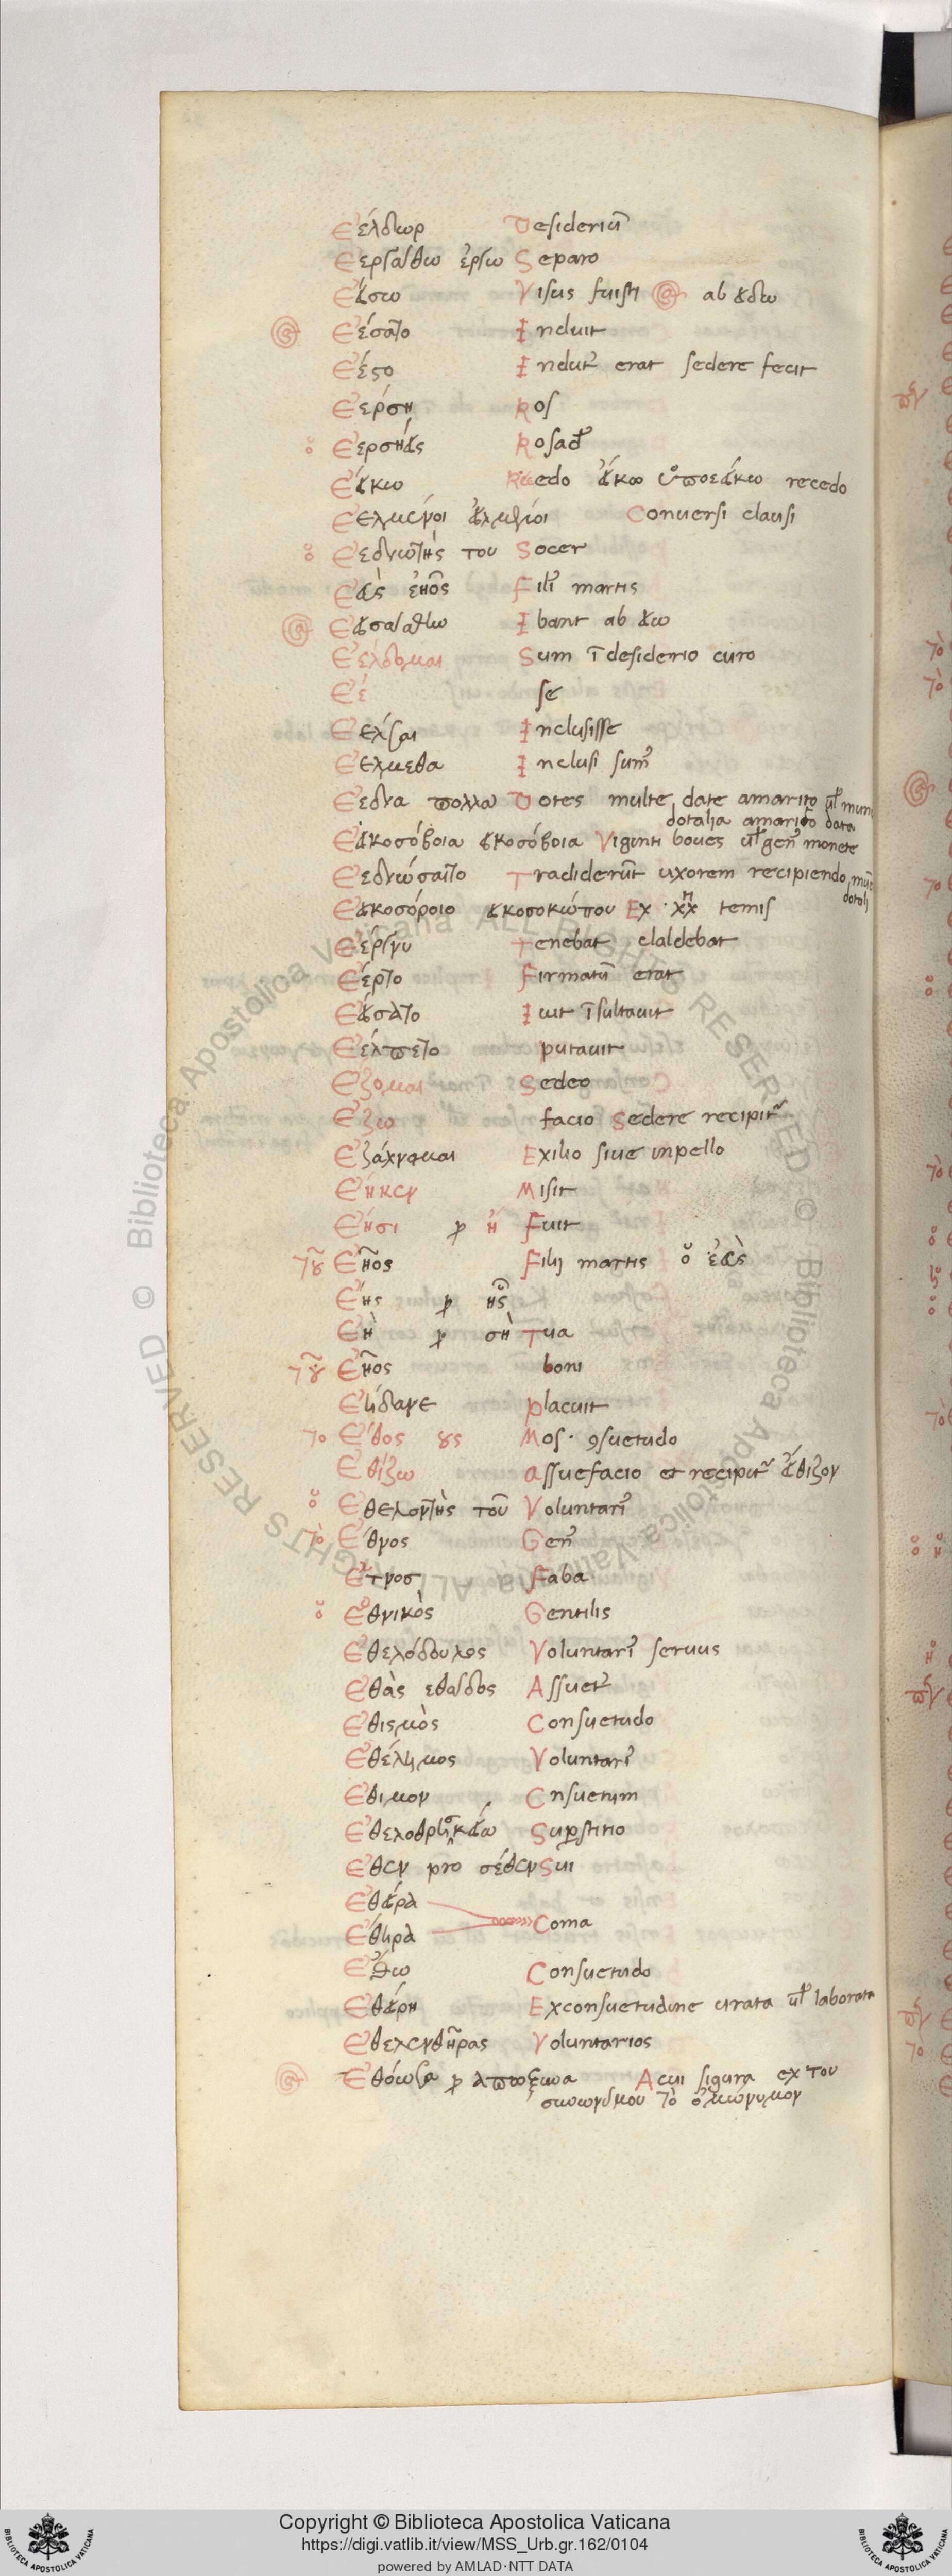 Εέλδωρ Desideriu̅
Εεργαθω ἐργω Separo
Εείσω Visus fuisti ab ειδω
Εέσατο Induit
Εέστο Indut᾽ erat sedere fecit
Εέρση Ros
ὁ Εερσήεις Rosad᾽
Εείκω Recedo εἴκω ὑποείκω recedo
Εελμένοι Conuersi clausi
ὁ Εεδνωτὴς του Socer
Εεὶς ἐῆος Fili᾽ martis
Εεισαθω Ibant ab ειω
Εέλδομαι Sum i̅ desiderio curo
Εέ se
Εελσαι Inclusisse
Εελμεθα Inclusi sum᾽
Εεδνα πολλα Dotes multe date a marito ul᾽ mun
dotalia a marito data
Εεικοσόβοια εικοσόβοια Viginti boues ul᾽ gen᾽ monete
Εεδνώσαιτο Tradideru̅t uxorem recipiendo mu̅
dotali
Εεικοσόροιο εικοσοκώπου Ex · xx temis
Εέργνυ Tenebat claldebat
Εέρτο Firmatu̅ erat
Εείσατο Iuit i̅sultauit
Εέλπετο putauit
Εζομαι Sedeo
Εζω facio Sedere recipit᾽
Εξάχνυμαι Exilio siue inpello
Εήκεν Misit
Εήσι ἠ Fuit
τοῦ Εῆος Filij martis ὁ ἐεὶς
Εής ης
Εὴ σὴ Tua
τοῦ Εῆος boni
Εήδανε placuit
το Εθος ους Mos· ꝯsuetudo
Εθίζω Assuefacio et recipit᾽ εἴθιζον
ὁ Εθελοντὴς τοῦ Voluntari᾽
τὸ Εθνος Gen᾽
Ετνοσ Faba
ὁ Εθνικὸς Gentilis
Εθελόδουλος Voluntari᾽ seruus
Εθὰς εθαδος Assuet᾽
Εθισμὸς Consuetudo
Εθέλημος Voluntari᾽
Εθιμον Cnsuetum
Εθελοθρησκεία Sup̲stitio
Εθεν pro σέθεν Sui
Εθειρα
Εθηρα Coma
Εθω Consuetudo
Εθείρη Ex consuetudine curata ul᾽ laborata
Εθελενθῆρας Voluntarios
Εθόωσα Acui figura ex του
συνωνύμου τὸ ὁμώνυμον
Copyright © Biblioteca Apostolica Vaticana
https://digi.vatlib.it/view/MSS_Urb.gr.162/0104
powered by AMLAD·NTT DATA